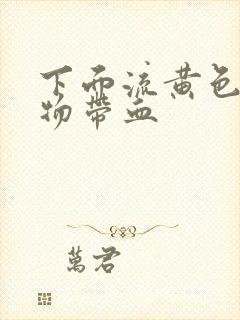 下面流黄色
物带血
萬君